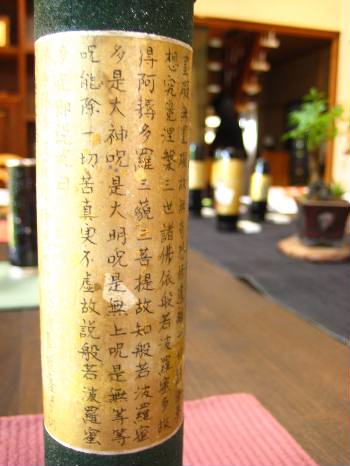 罣礙無罣礙故無有恐怖遠離
想究竟涅槃三世諸佛依般若波羅蜜多故
得阿耨多羅三藐三菩提故知般若波羅蜜
多是大神呪是大明呪是無上呪是無等等
呪能除一切苦真実不虚故説般若波羅蜜
多呪即説呪曰